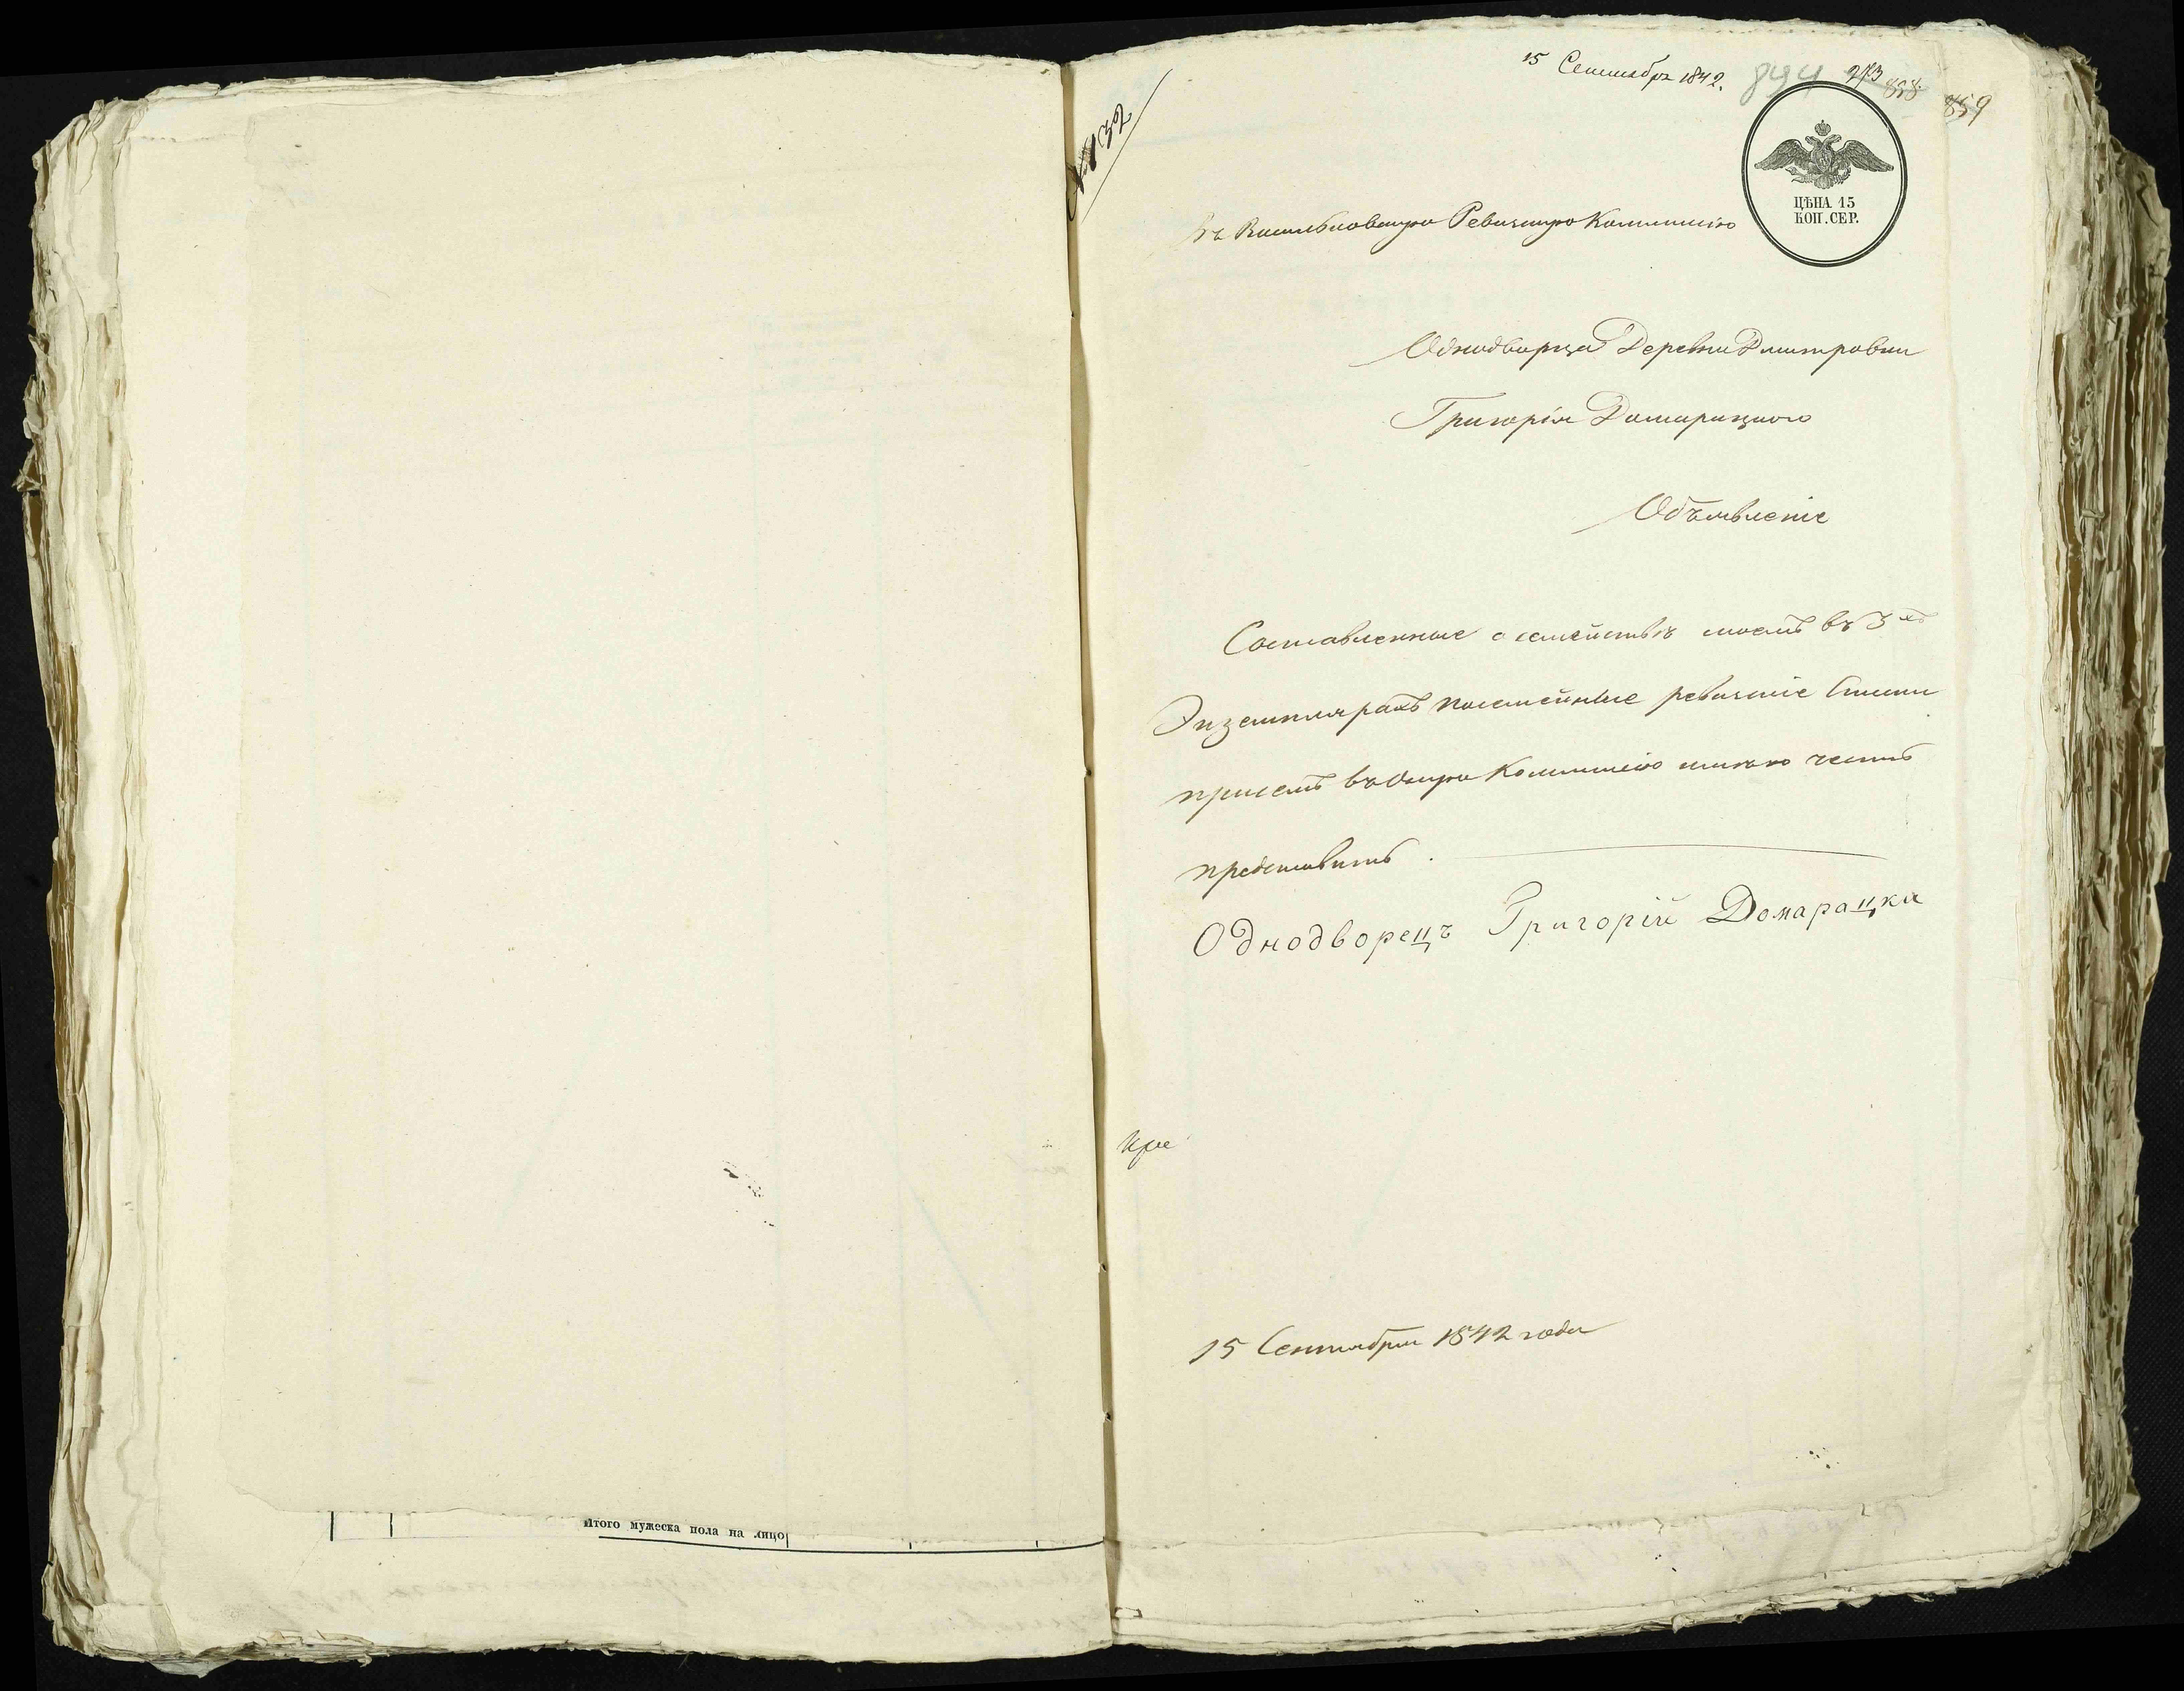 Итого мужеска пола на лицо
15 Сентября 1842.
894
273
858
859
ЦѢНА 15
КОП. СЕР.
Въ Васильковскую Ревизскую Коммиссію
Однодворца Деревни Дмитровки
Григорія Домарацкого
Объявленіе
Составленные о семействѣ моемъ въ 3хъ
Экземплярахъ посемейные ревизскіе Списки
при семъ въ оную Коммиссію имѣю честь
представить.
Однодворецъ Григорій Домарацки
15 Сентября 1842 года